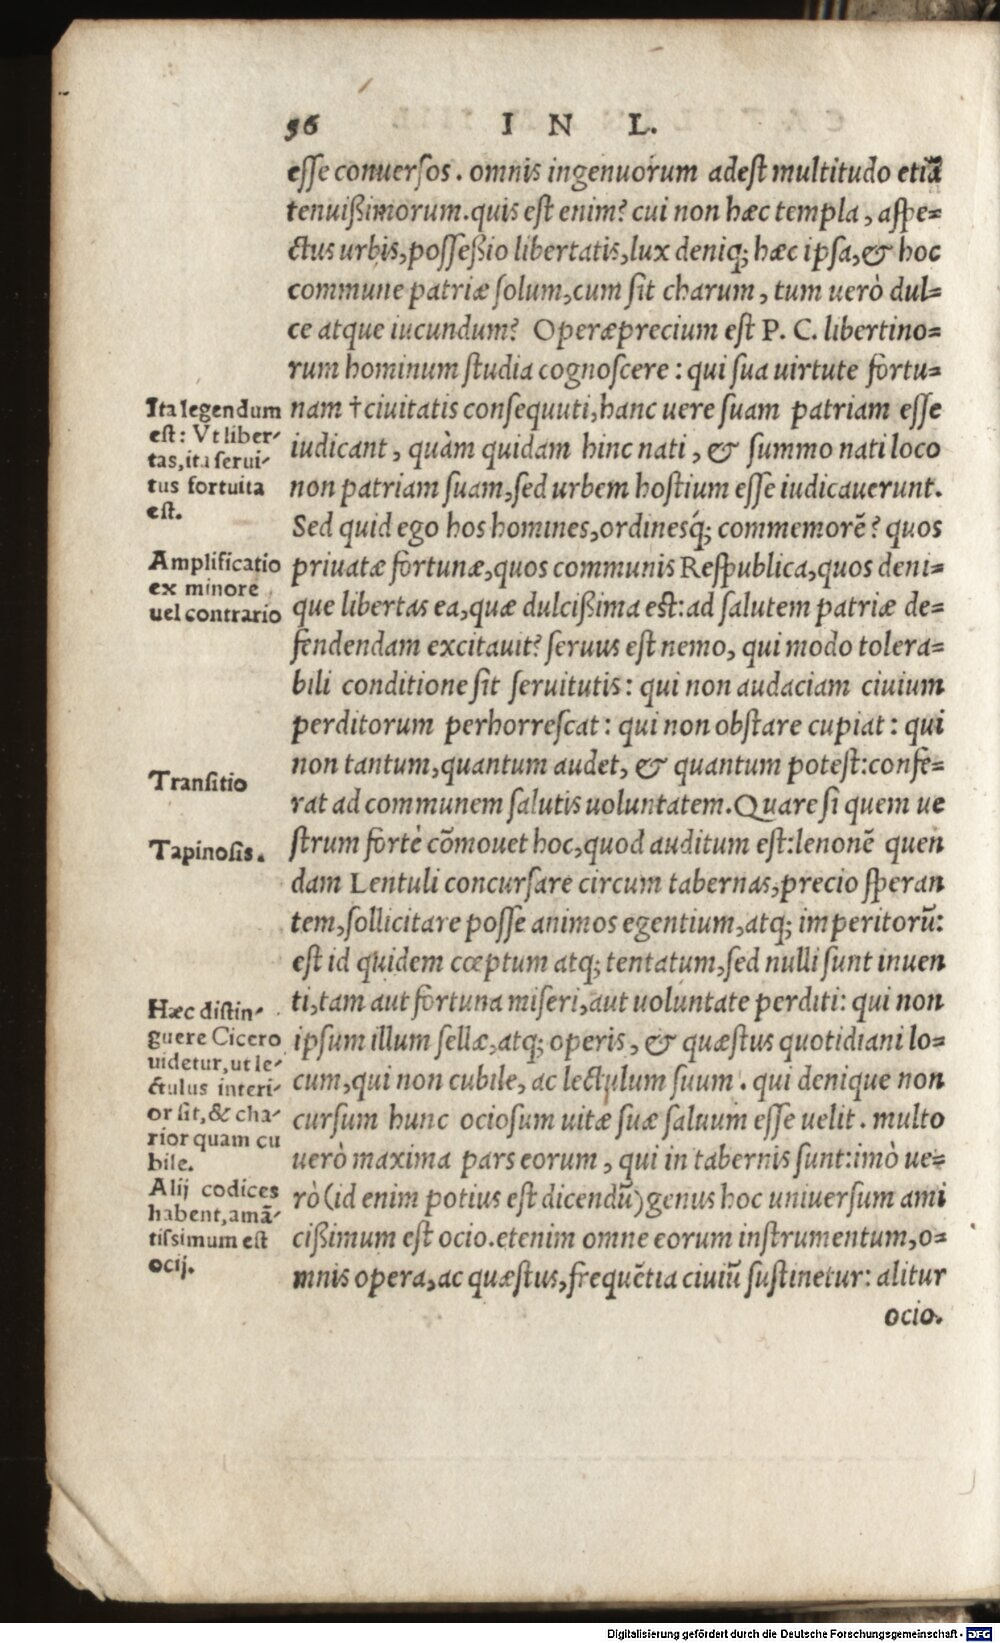 56 IN L.
esse conuersos. omnis ingenuorum adest multitudo etiā
tenuißimorum. quis est enim? cui non hæc templa, aspe=
ctus urbis, possessio libertatis, lux deniq; hæc ipsa, & hoc
commune patriæ solum, cum sit charum, tum uerò dul=
ce atque iucundum? Operæprecium est P. C. libertino=
rum hominum studia cognoscere: qui sua uirtute fortu=
nam †ciuitatis consequuti, hanc uere suam patriam esse
iudicant, quàm quidam hinc nati, & summo nati loco
non patriam suam, sed urbem hostium esse iudicauerunt.
Sed quid ego hos homines, ordinesq́; commemorē? quos
priuatæ fortunæ, quos communis Respublica, quos deni=
que libertas ea, quæ dulcißima est: ad salutem patriæ de=
fendendam excitauit? seruus est nemo, qui modo tolera=
bili conditione sit seruitutis: qui non audaciam ciuium
perditorum perhorrescat: qui non obstare cupiat: qui
non tantum, quantum audet, & quantum potest: confe=
rat ad communem salutis uoluntatem. Quare si quem ue
strum fortè cōmouet hoc, quod auditum est: lenonē quen
dam Lentuli concursare circum tabernas, precio speran
tem, sollicitare posse animos egentium, atq; imperitorū:
est id quidem cœptum atq; tentatum, sed nulli sunt inuen
ti, tam aut fortuna miseri, aut uoluntate perditi: qui non
ipsum illum sellæ, atq; operis, & quæstus quotidiani lo=
cum, qui non cubile, ac lectulum suum. qui denique non
cursum hunc ociosum uitæ suæ saluum esse uelit. multo
uerò maxima pars eorum, qui in tabernis sunt: imò ue=
rò (id enim potius est dicendū) genus hoc uniuersum ami
cißimum est ocio. etenim omne eorum instrumentum, o=
mnis opera, ac quæstus, frequētia ciuiū sustinetur: alitur
ocio.
Ita legendum
est: Vt liber-
tas, ita serui-
tus fortuita
est.
Amplificatio
ex minore
uel contrario
Transitio
Tapinosis.
Hæc distin-
guere Cicero
uidetur, ut le-
ctulus interi-
or sit, & cha-
rior quam cu
bile.
Alij codices
habent, amā-
tissimum est
ocij.
Digitalisierung gefördert durch die Deutsche Forschungsgemeinschaft - DFG